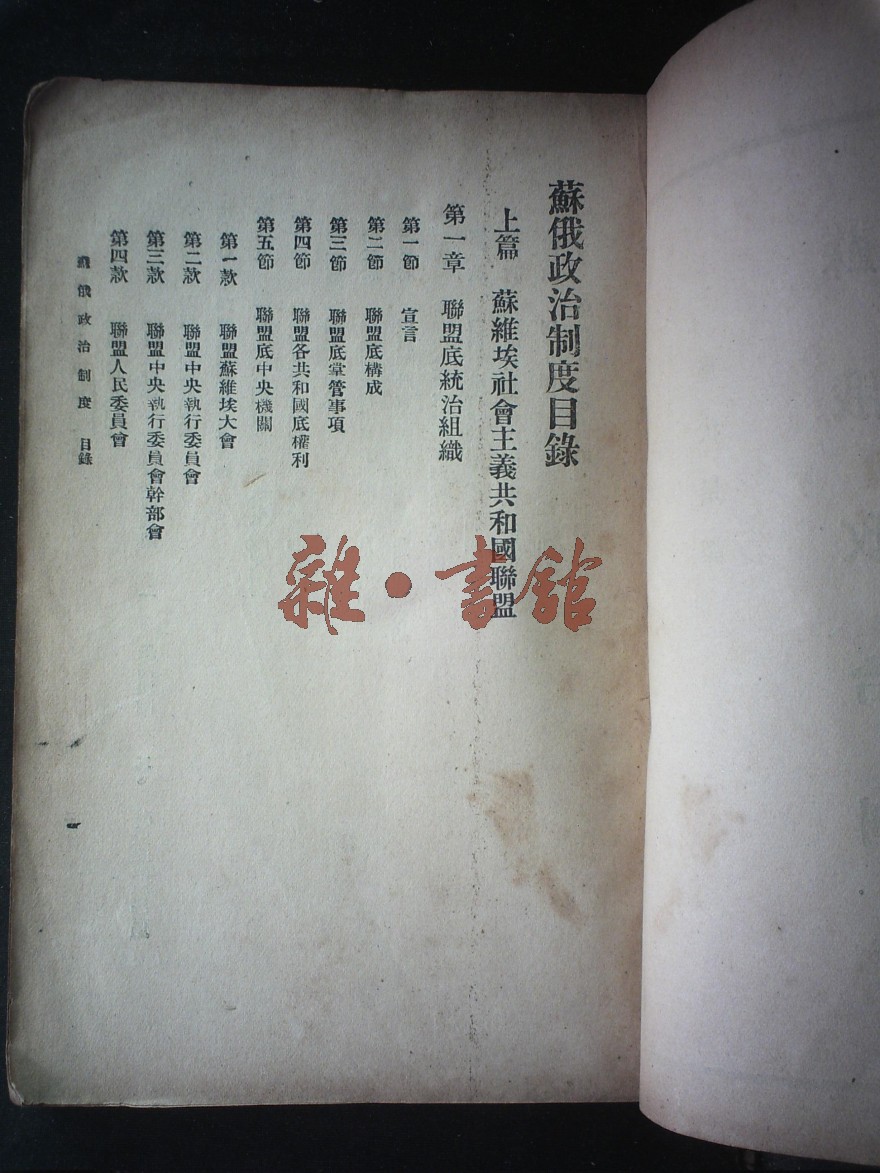 蘇俄政治制度目錄
上篇 蘇維埃社會主義共和國聯盟
第一章 聯盟底統治組織
第一節 宣言
第二節 聯盟底構成
第三節 聯盟底掌管事項
第四節 聯盟各共和國底權利
第五節 聯盟底中央機關
第一款 聯盟蘇維埃大會
第二款 聯盟中央執行委員會
第三款 聯盟中央執行委員會幹部會
第四款 聯盟人民委員會
蘇俄政治制度 目錄
雜·書館